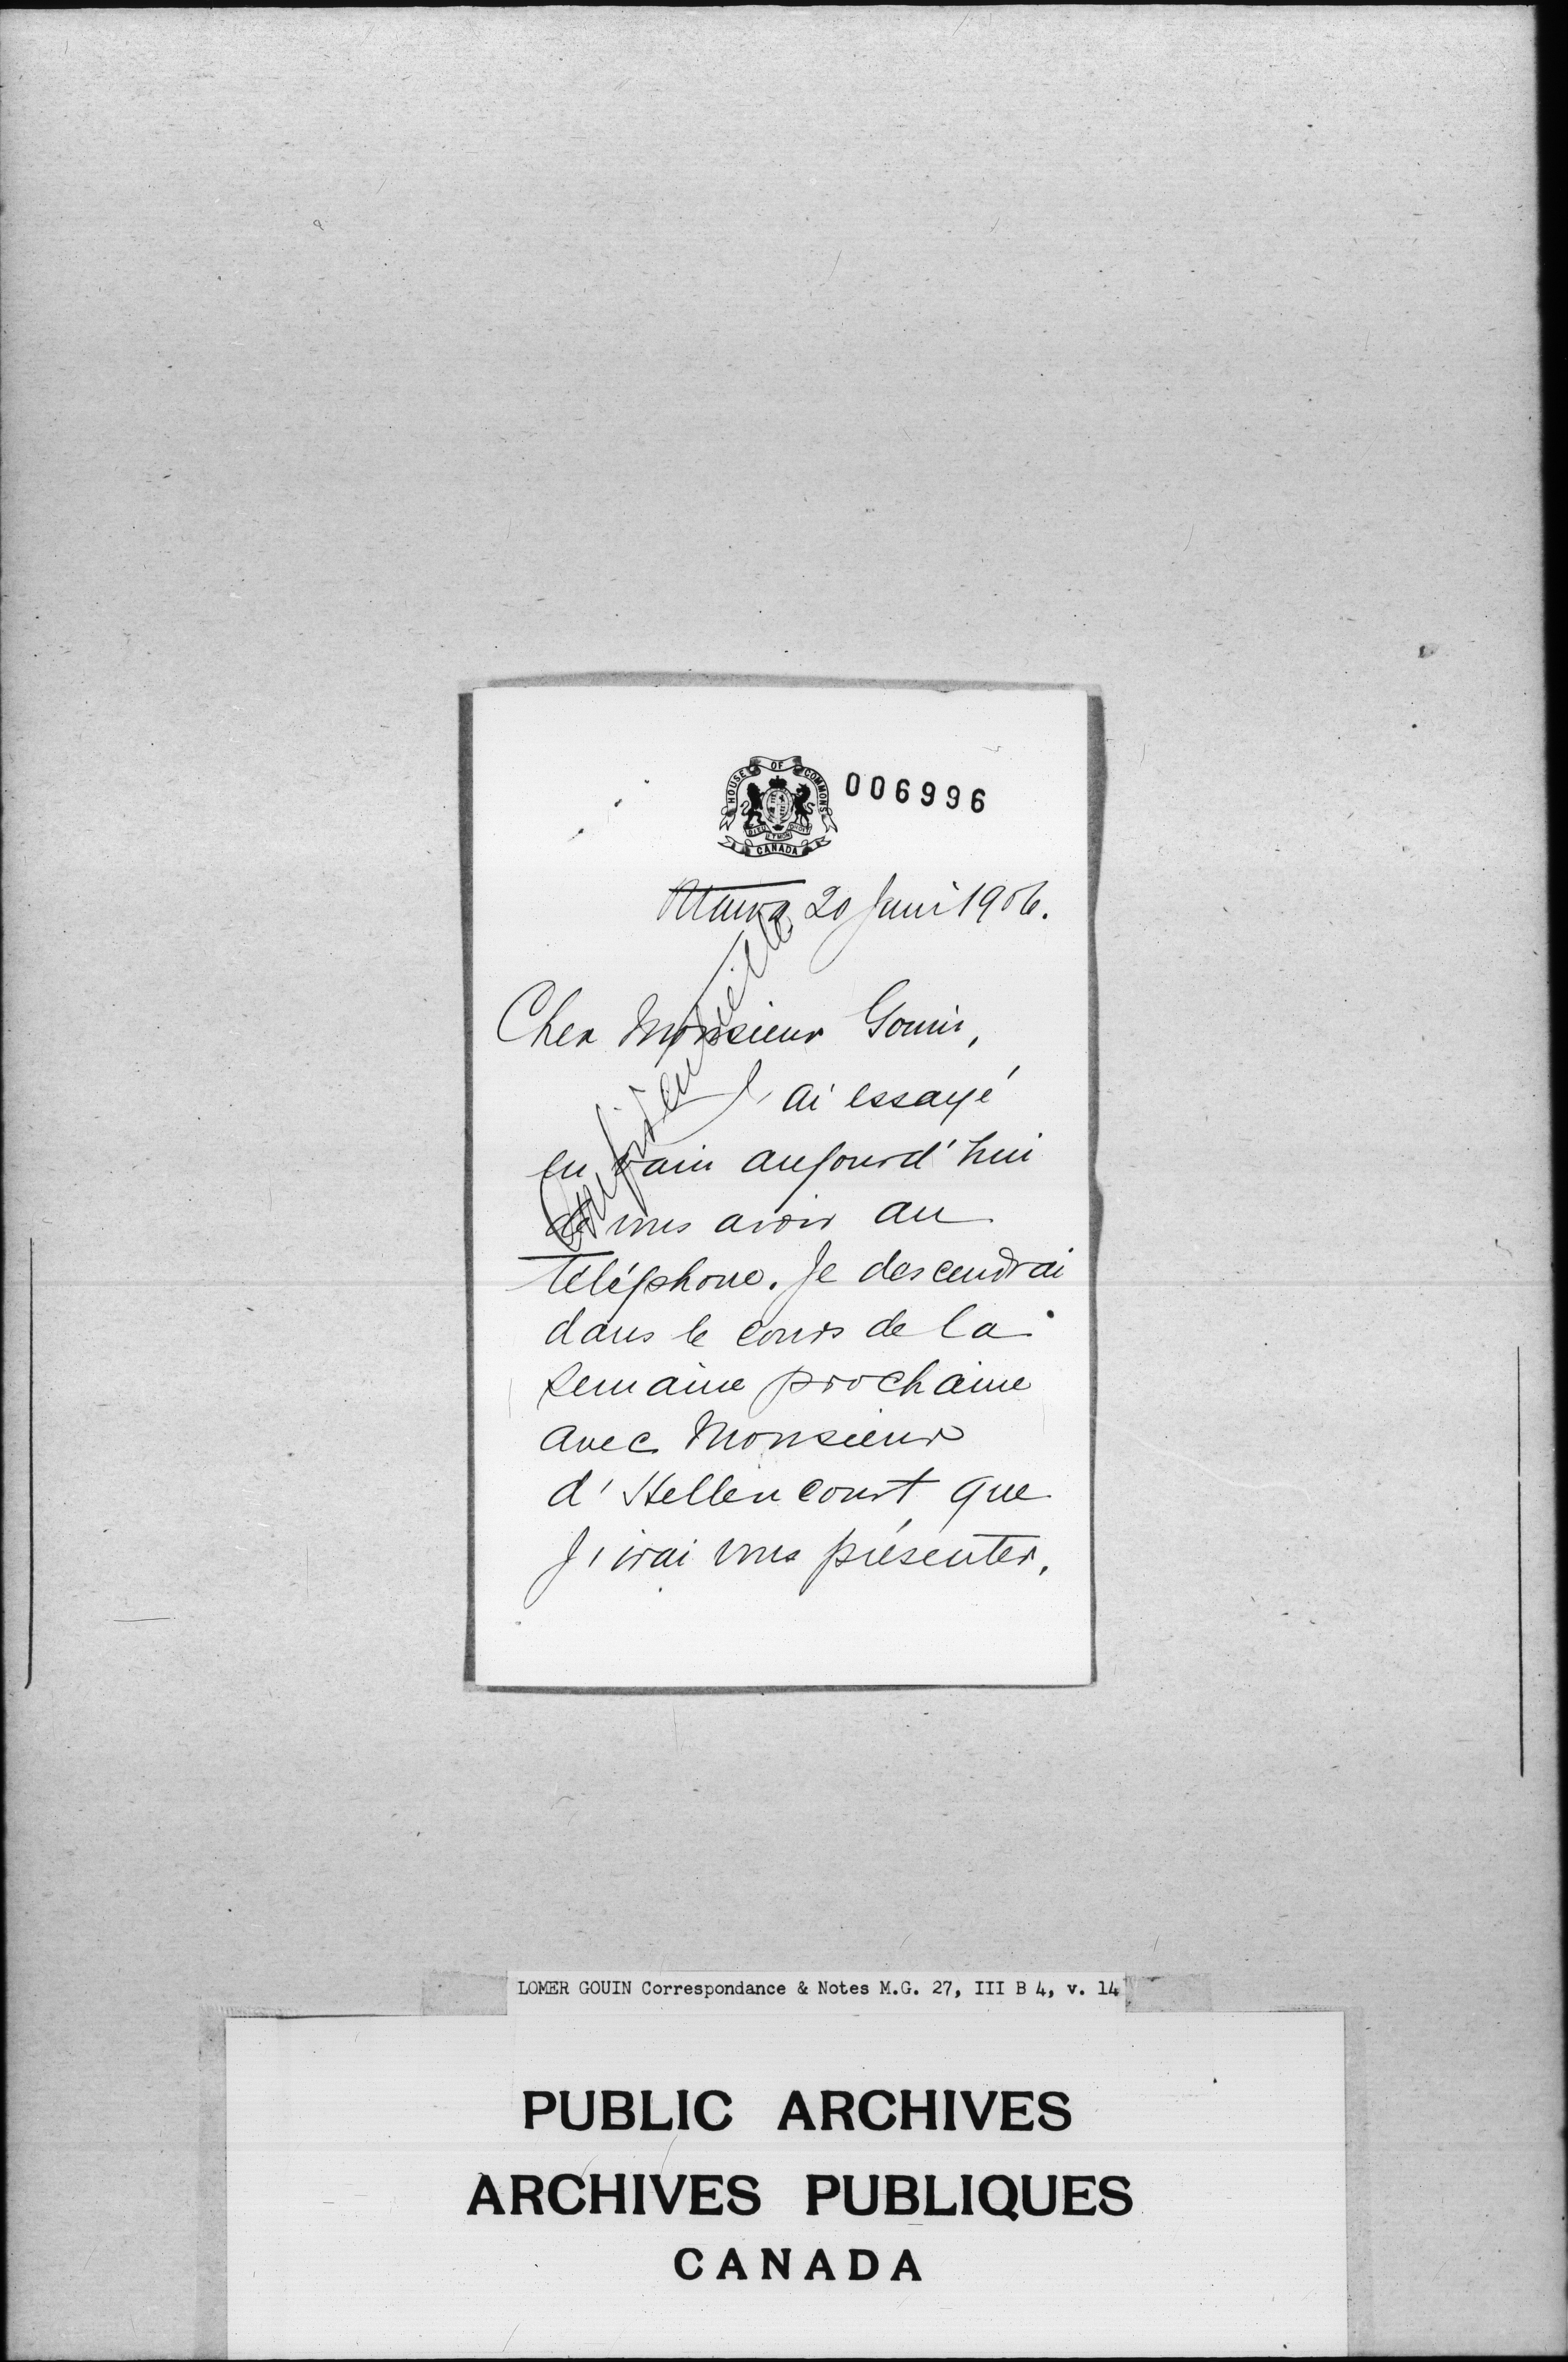 HOUSE OF COMMONS
CANADA
006996
Ottawa 20 Juin 1906.
Confidentielle
Cher Monsieur Gouin,
J'ai essayé
en vain aujourd'hui
de vous avoir au
téléphone. Je descendrai
dans le cours de la
semaine prochaine
avec Monsieur
d'Hellencourt que
j'irai vous présenter.
LOMER GOUIN Correspondance & Notes M.G. 27, III B 4, v. 14
PUBLIC ARCHIVES
ARCHIVES PUBLIQUES
CANADA